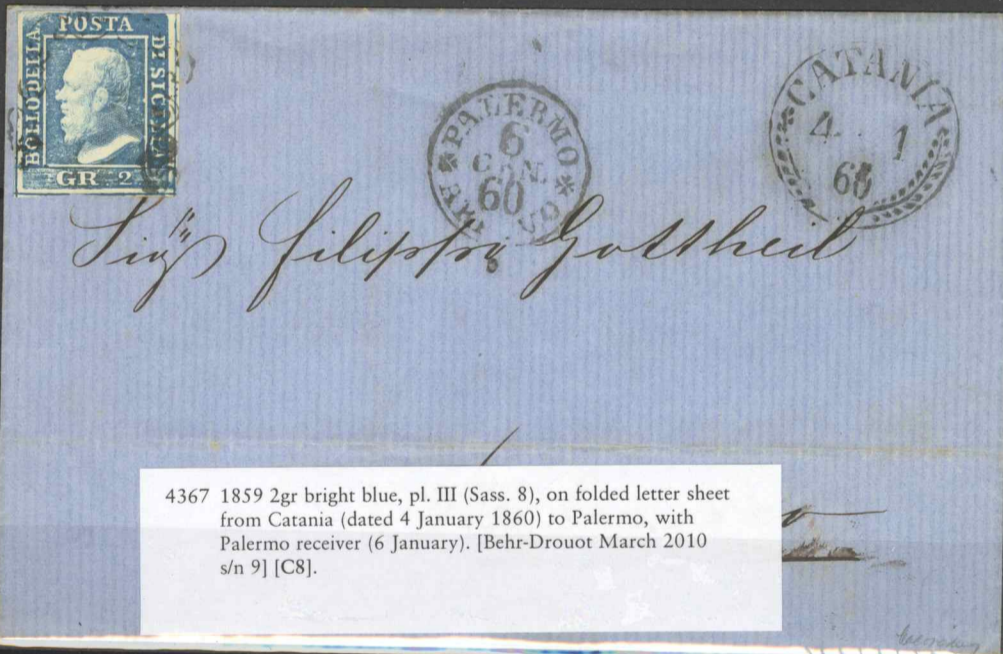 POSTA
BOLLO DELLA
DI SICILIA
GR. 2
PALERMO
6
GEN.
60
ARR
CATANIA
4 1
60
Sigr Filippo Gottheil
4367 1859 2gr bright blue, pl. III (Sass. 8), on folded letter sheet
from Catania (dated 4 January 1860) to Palermo, with
Palermo receiver (6 January). [Behr-Drouot March 2010
s/n 9] [C8].